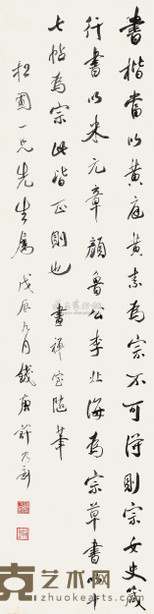 書楷當以黃庭黃素為宗不可得則宗女史箴
行書以米元章顏魯公李北海為宗草書以十
七帖為宗此皆正則也 畫禪室隨筆
松圃一兄先生屬 戊辰九月錢唐
卓克艺术网